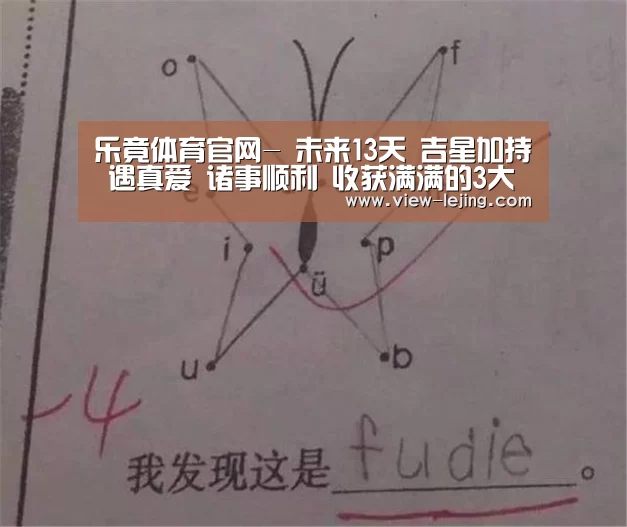 o f
乐竟体育官网- 未来13天 吉星加持
遇真爱 诸事顺利 收获满满的3大
www.view-lejing.com
e
i p
ü
u b
-4
我发现这是fudie。